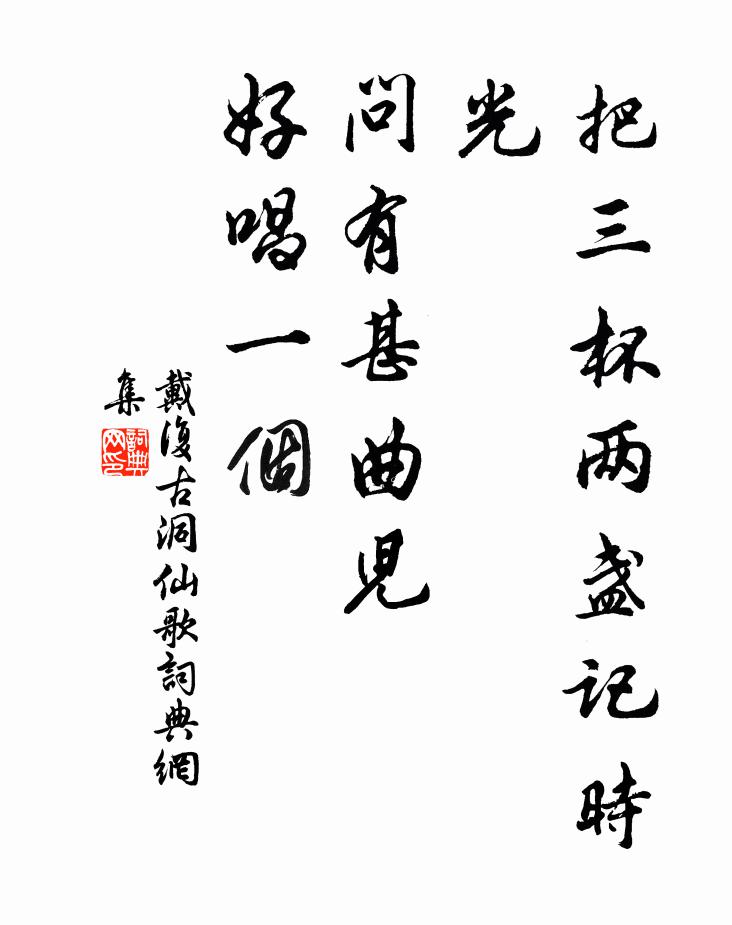 把三杯两盏记時
光
问有甚曲児
好唱一個
戴復古洞仙歌詞典網
集
詞典
网印